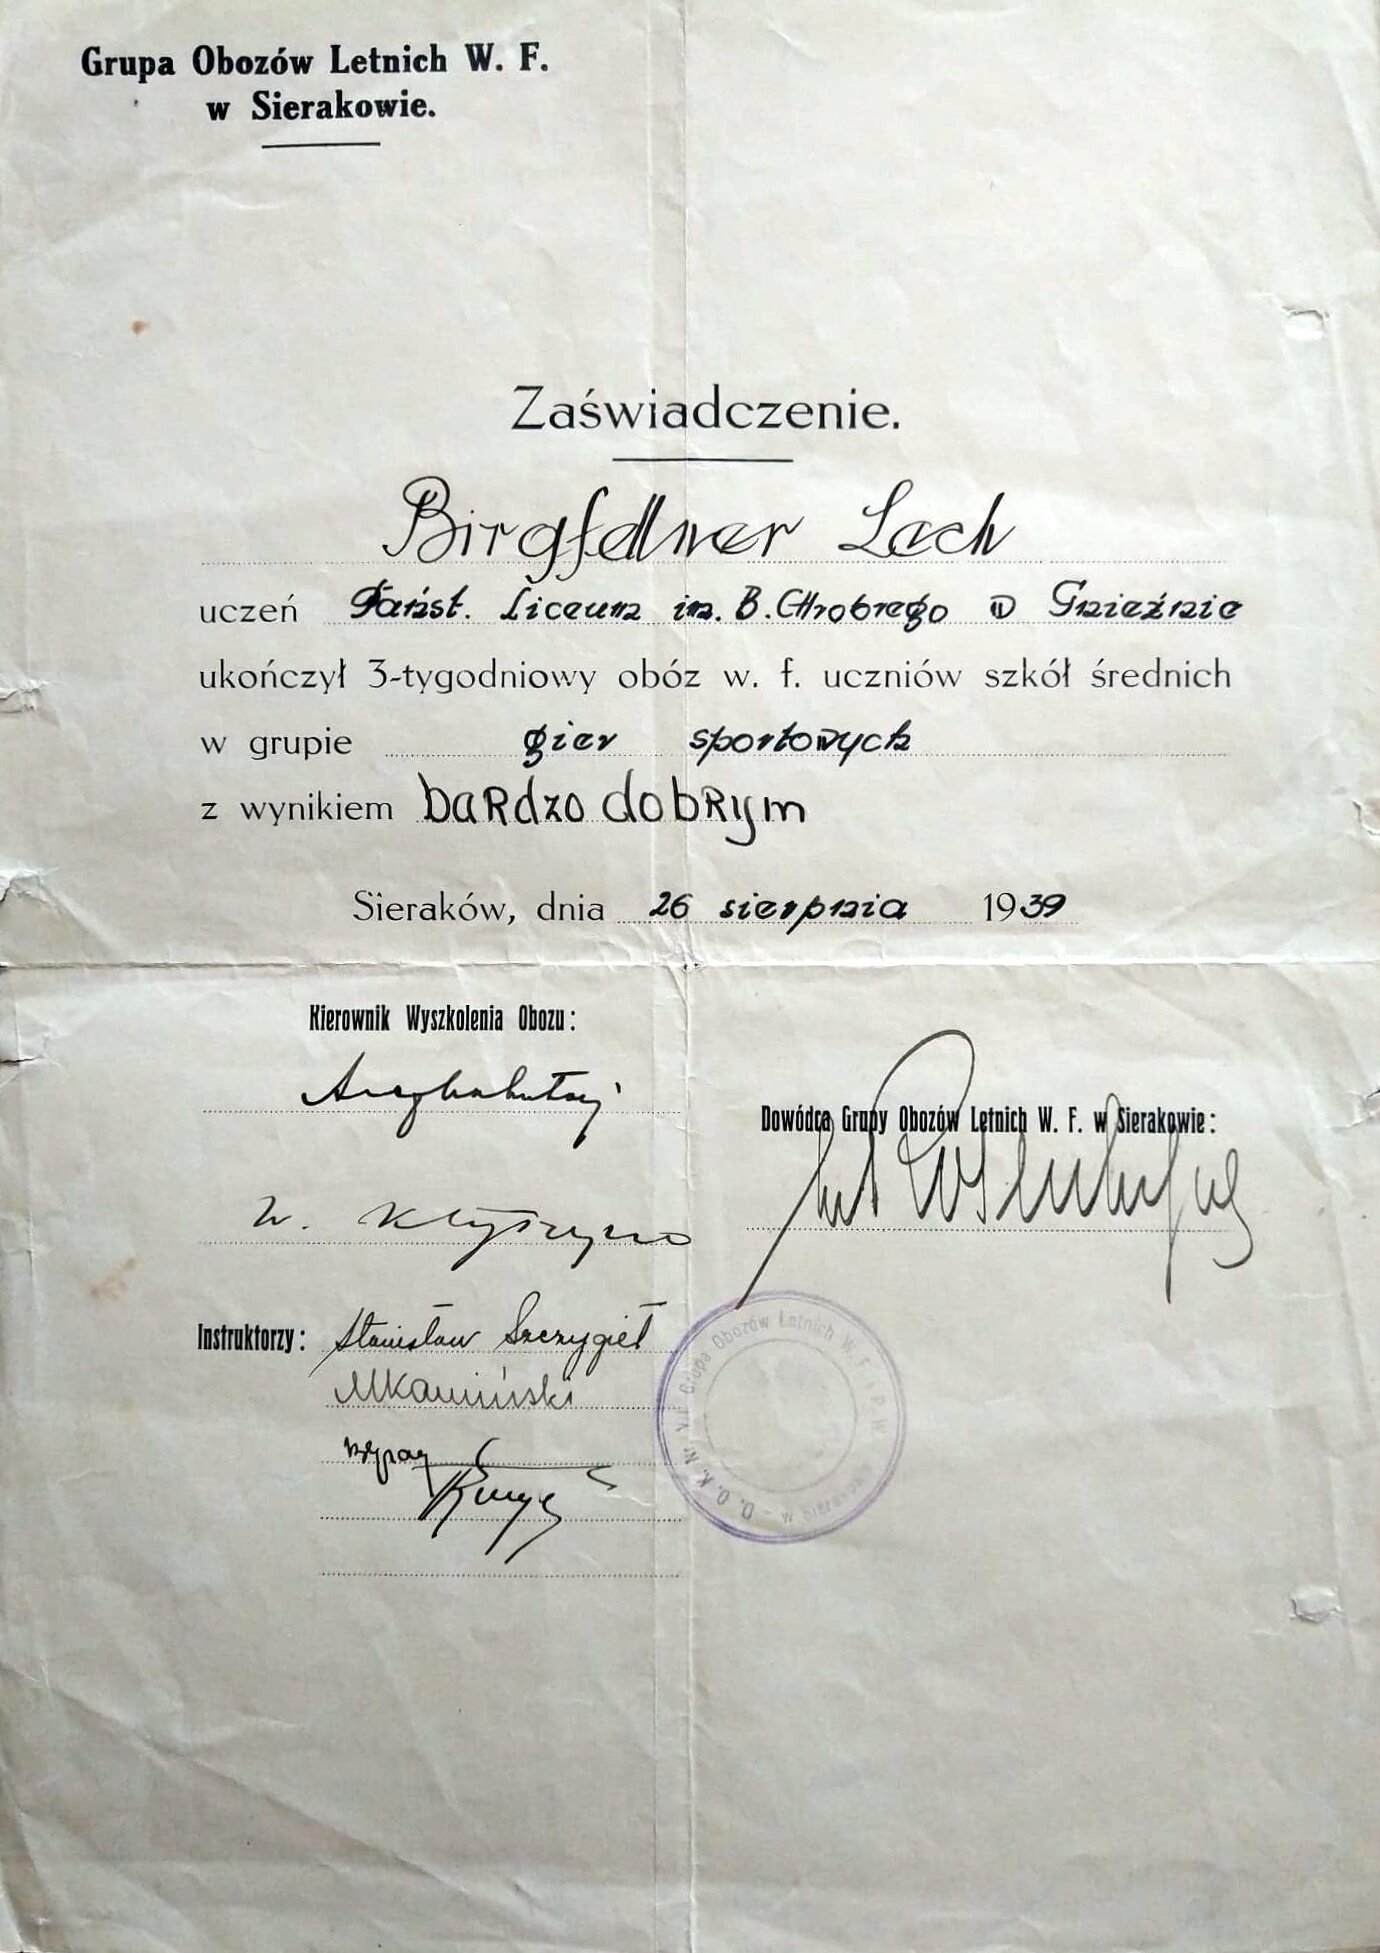 Grupa Obozów Letnich W. F.
w Sierakowie.
Zaświadczenie.
Birgfellner Lech
uczeń Państ. Liceum im. B. Chrobrego w Gnieźnie
ukończył 3-tygodniowy obóz w. f. uczniów szkół średnich
w grupie gier sportowych
z wynikiem bardzo dobrym
Sieraków, dnia 26 sierpnia 1939
Kierownik Wyszkolenia Obozu:
Dowódca Grupy Obozów Letnich W. F. w Sierakowie:
W.
Instruktorzy: Stanisław Szczygieł
MKamiński
D. O. K. Nr VII Grupa Obozów Letnich W. F. i P. W. w Sierakowie